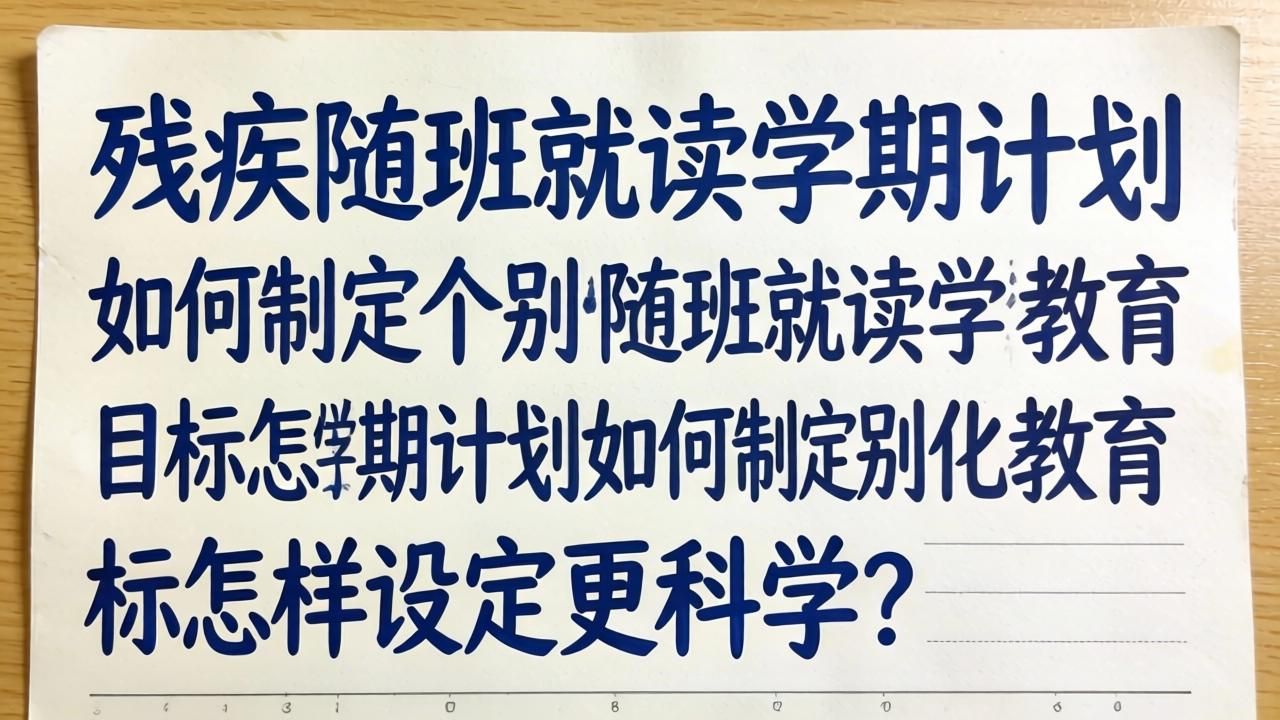 残疾随班就读学期计划
如何制定个别随班就读学教育
目标怎学期计划如何制定别化教育
标怎样设定更科学?